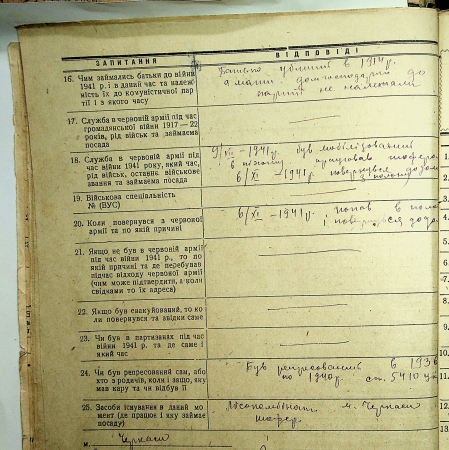 ЗАПИТАННЯ
ВІДПОВІДІ
16. Чим займались батьки до війни
1941 р. і в даний час та належ-
ність їх до комуністичної пар-
тії і з якого часу
Батько убитий в 1914 р.
а мати домгосподарка до
партії не належали
17. Служба в червоній армії під час
громадянської війни 1917—22
років, рід військ та займаєма
посада
18. Служба в червоній армії під
час війни 1941 року, який час,
рід військ, останнє військове
звання та займаєма посада
9/VII — 1941р. був мобілізований
в працював шофером
6/XI — 1941р. повернувся додому
з полону
19. Військова спеціальність
№ (ВУС)
20. Коли повернувся з червоної
армії та по якій причині
6/XI — 1941р. попав в полон
і повернувся додо
21. Якщо не був в червоній армії
під час війни 1941 р., то по
якій причині та де перебував
підчас відходу червоної армії
(чим може підтвердити, а коли
свідками то їх адреса)
22. Якщо був евакуйований, то ко-
ли повернувся та звідки саме
23. Чи був в партизанах під час
війни 1941 р. та де саме і
який час
24. Чи був репресований сам, або
хто з родичів, коли і защо, яку
мав кару та чи відбув її
Був репресований в 1936
по 1940р. ст. 5410 ук
25. Засоби існування в даний мо-
мент (де працює і яку займає
посаду)
м. Черкаси
шофер
м. Черкаси